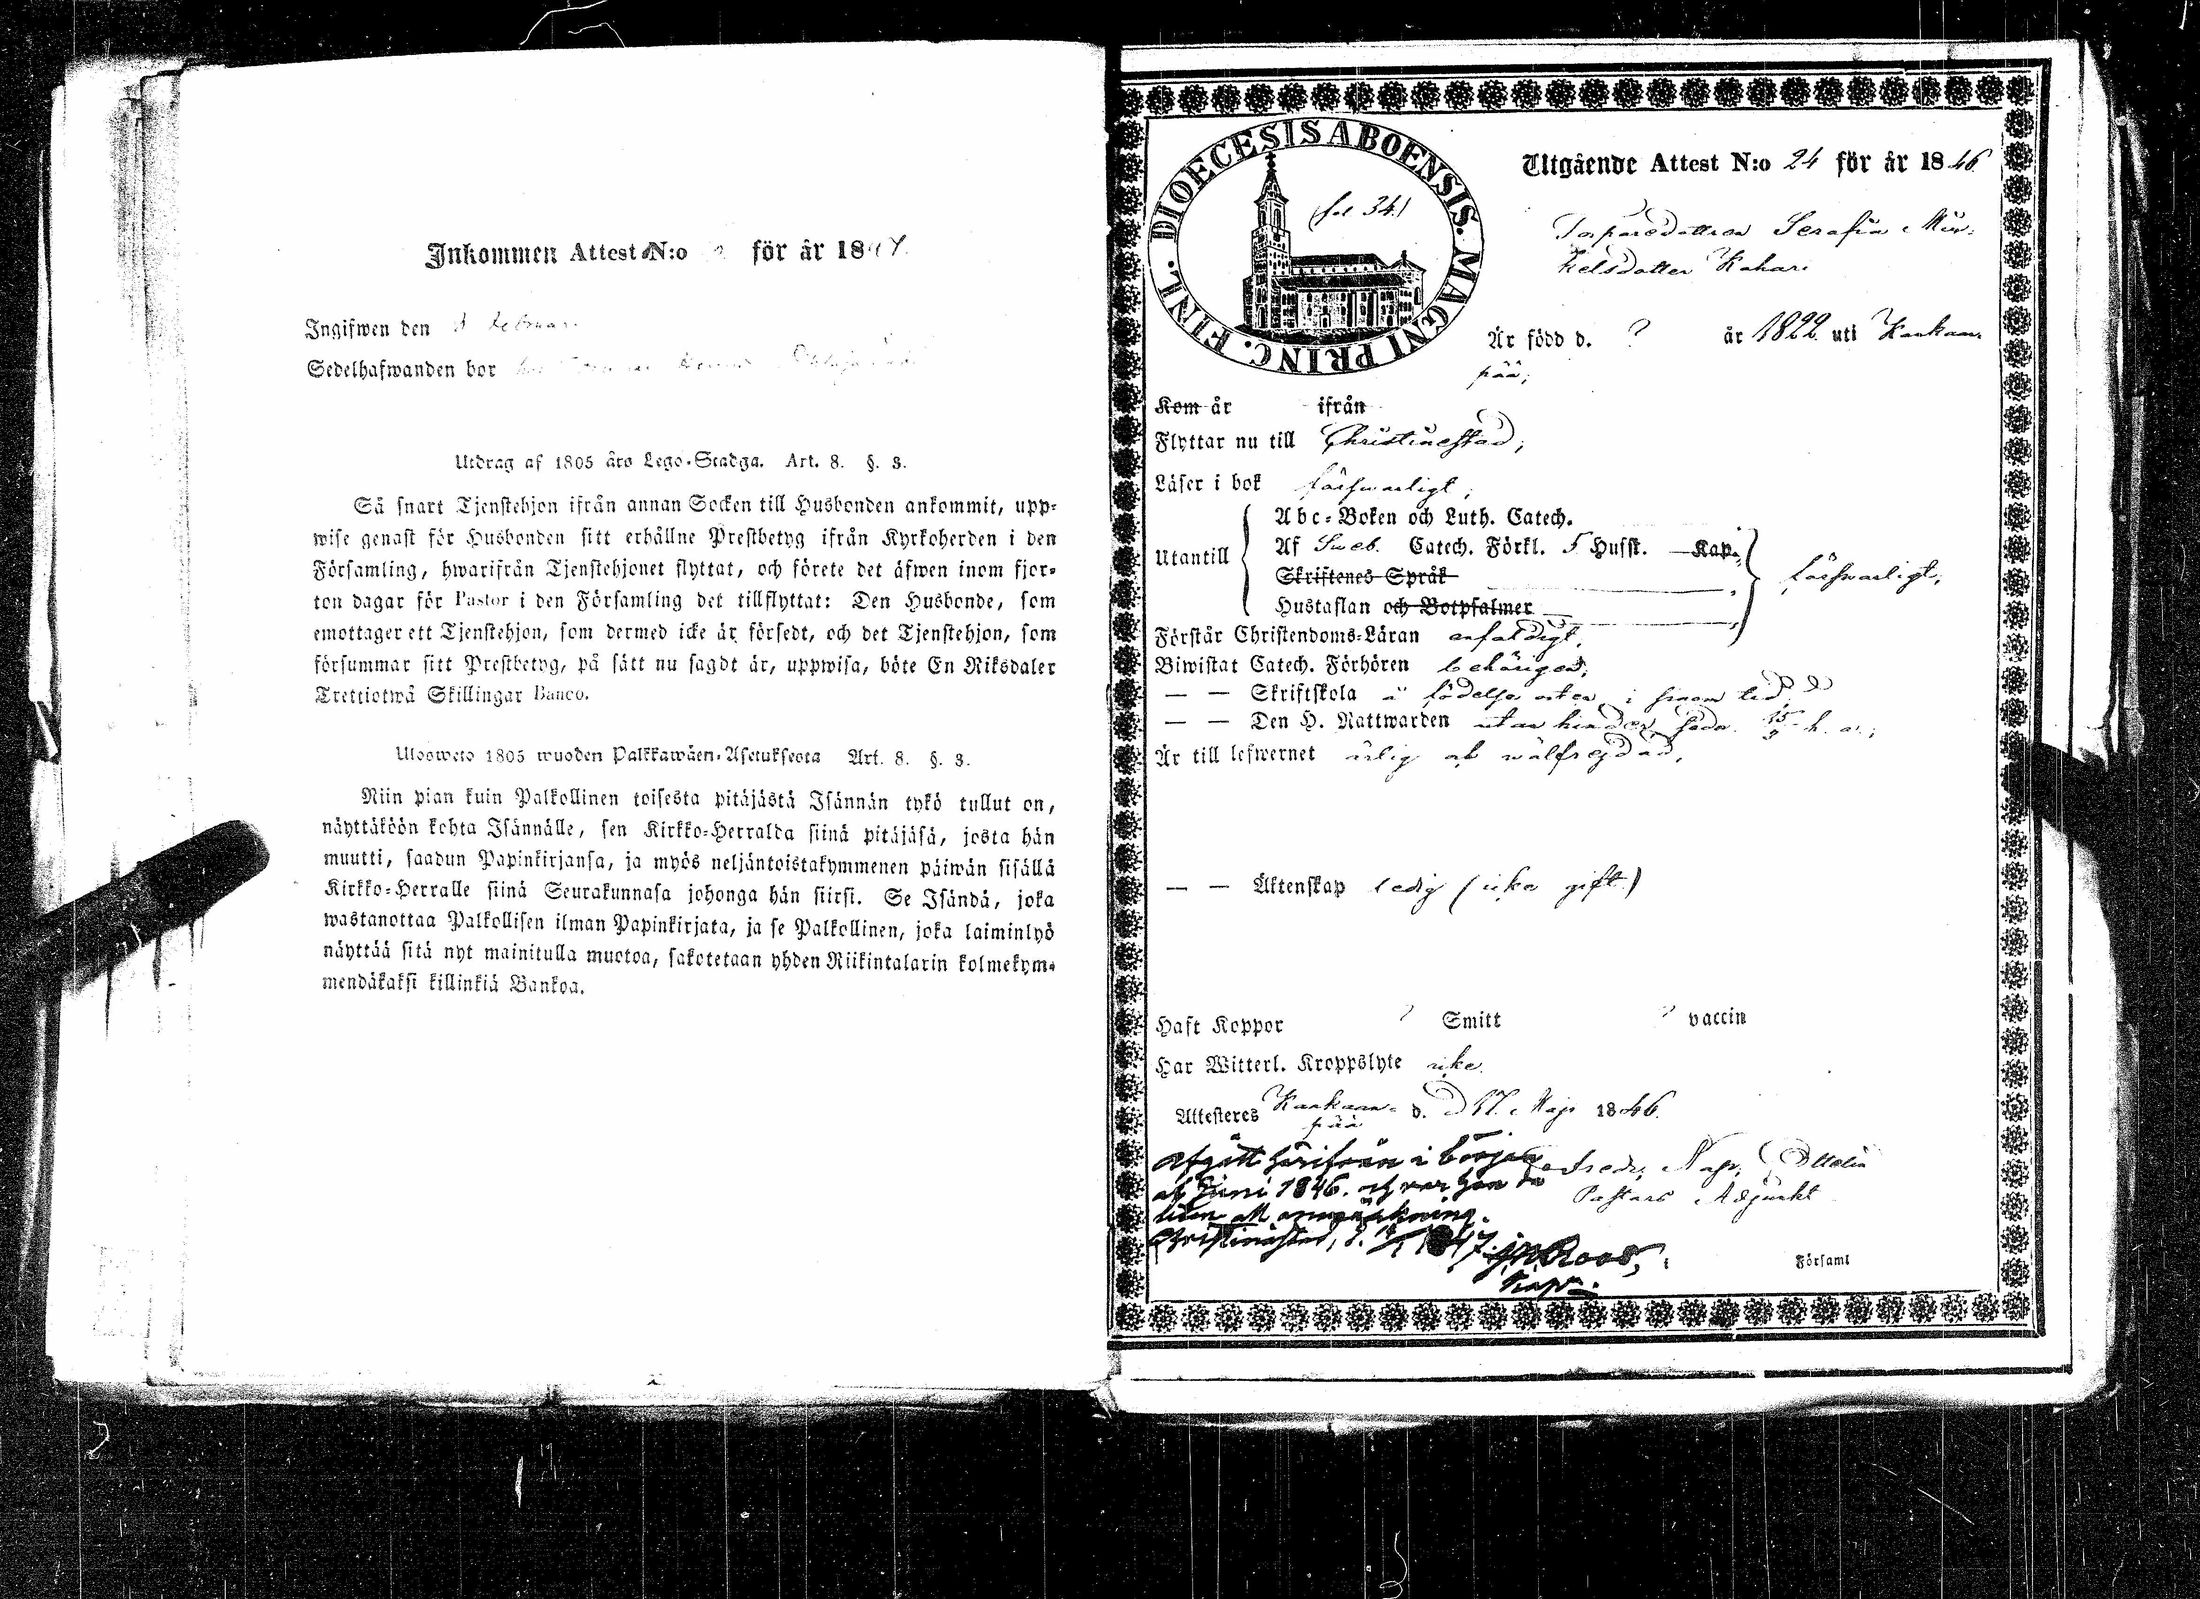 Inkommen Attest N:o för år 1847.
Ingifwen den 8 Februari
Sedelhafwanden bor
Utdrag af 1805 års Lego-Stadga. Art. 8. §. 3.
Så snart Tjenstehjon ifrån annan Socken till Husbonden ankommit, upp-
wise genast för Husbonden sitt erhållne Prestbetyg ifrån Kyrkoherden i den
Församling, hwarifrån Tjenstehjonet flyttat, och förete det äfwen inom fjor-
ton dagar för Pastor i den Församling det tillflyttat: Den Husbonde, som
emottager ett Tjenstehjon, som dermed icke är försedt, och det Tjenstehjon, som
försummar sitt Prestbetyg, på sätt nu sagdt är, uppwisa, böte En Riksdaler
Trettiotwå Skillingar Banco.
Uloswеto 1805 wuoden Palkkawäen-Asetuksesta Art. 8. §. 3.
Niin pian kuin Palkollinen toisesta pitäjästä Isännän tykö tullut on,
näyttäköön kohta Isännälle, sen Kirkko-Herralda siinä pitäjäsä, josta hän
muutti, saadun Papinkirjansa, ja myös neljäntoistakymmenen päiwän sisällä
Kirkko-Herralle siinä Seurakunnasa johonga hän siirsi. Se Isändä, joka
wastanottaa Palkollisen ilman Papinkirjata, ja se Palkollinen, joka laiminlyö
näyttää sitä nyt mainitulla muotoa, sakotetaan yhden Riikintalarin kolmekym-
mendäkaksi killinkiä Bankoa.
DIOECESIS ABOENSIS. MAGNI PRINC. FINL.
(fol 34.)
Utgående Attest N:o 24 för år 1846
Torparedottren Serafia Mic-
kelsdotter Kahari
Är född d. ? år 1822 uti Kankaan-
pää;
Kom år ifrån
Flyttar nu till Christinestad;
Läser i bok försvarligt;
Utantill
Abc-Boken och Luth. Catech.
Af Sweb. Catech. Förkl. 5 Husst. Kap.
Skriftenes Språk
Hustaflan och Botpsalmer
försvarligt,
Förstår Christendoms-Läran enfaldigt,
Biwistat Catech. Förhören behörigen,
— — Skriftskola å födelse orten i sinom tid,
— — Den H. Nattwarden utan hinder,
Är till lefwernet ärlig och wälfrejdad,
— — Äktenskap ledig (icke gift)
Haft Koppor ? Smitt ? vaccin
Har Witterl. Kroppslyte icke.
Attesteras Kankaan-
pää d. 17 Maji 1846.
Afgått härifrån i början
af Juni 1846. och var hon då
utan all anmärkning.
Christinestad, d. 1847. Roos,
Kapn.
Pastors Adjunkt
i Församl